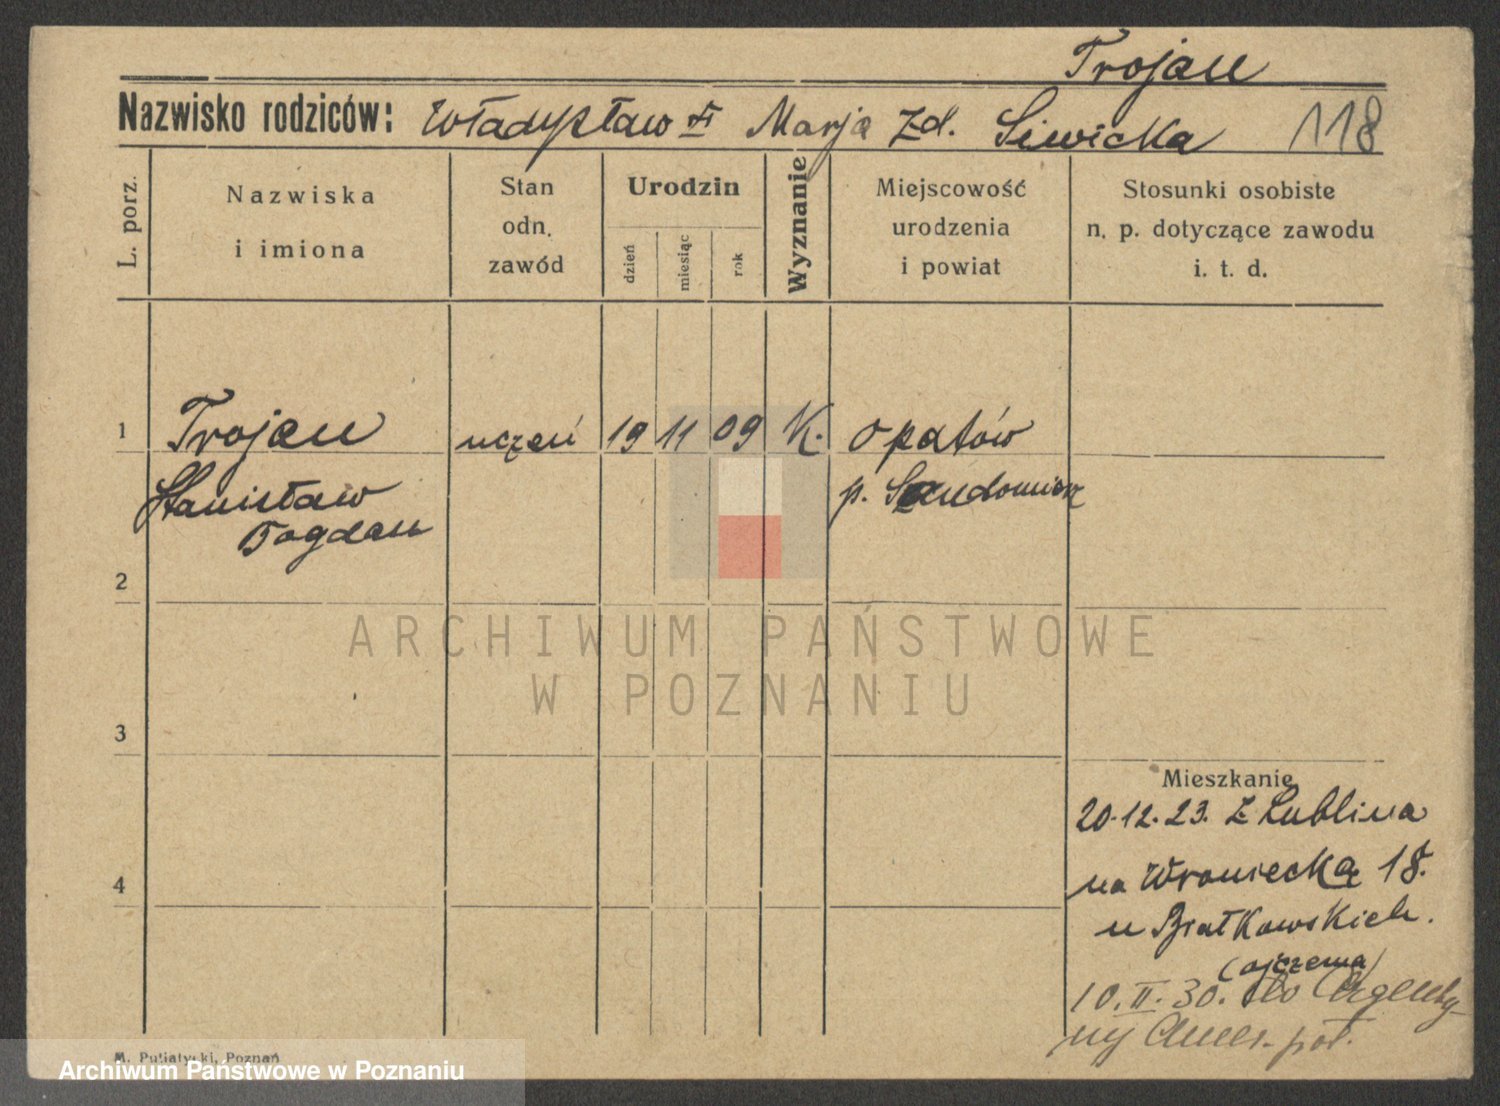 Trojan
Nazwisko rodziców: Władysław + Marja zd. Siwicka 118
L. porz.
Nazwiska
i imiona
Stan
odn.
zawód
Urodzin
dzień
miesiąc
rok
Wyznanie
Miejscowość
urodzenia
i powiat
Stosunki osobiste
n. p. dotyczące zawodu
i. t. d.
1 Trojan uczeń 19 11 09 K. Opatów
Stanisław p. Sandomierz
Bogdan
2
ARCHIWUM PAŃSTWOWE
W POZNANIU
3
Mieszkanie
20.12.23. z Lublina
na Wroniecką 18.
4
u Białkowskich.
(ojczema)
10.II.30. do Argenty-
ny Amer. poł.
M. Putiatycki, Poznań
Archiwum Państwowe w Poznaniu